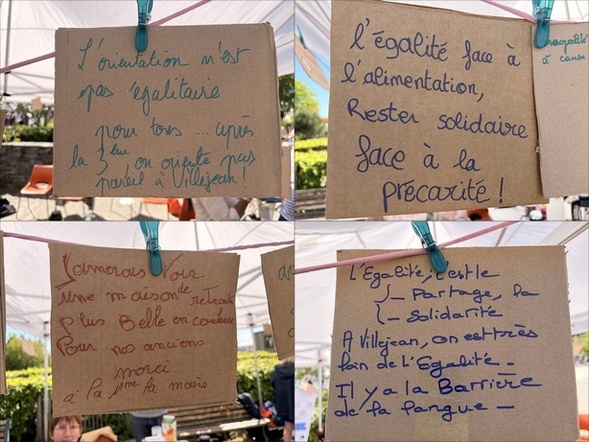 L'orientation n'est
pas égalitaire
pour tous ... après
la 3ème on oriente pas
pareil à Villejean !
l'égalité face à
l'alimentation,
Rester solidaire
face à la
précarité !
à cause
J'aimerais Voir
une maison de Retraite
Plus Belle en couleur
Pour nos anciens
merci
à la Mme la maire
L'Egalité, c'est le
- Partage, la
- Solidarité
A Villejean, on est très
loin de l'Egalité -
Il y a la Barrière
de la langue -